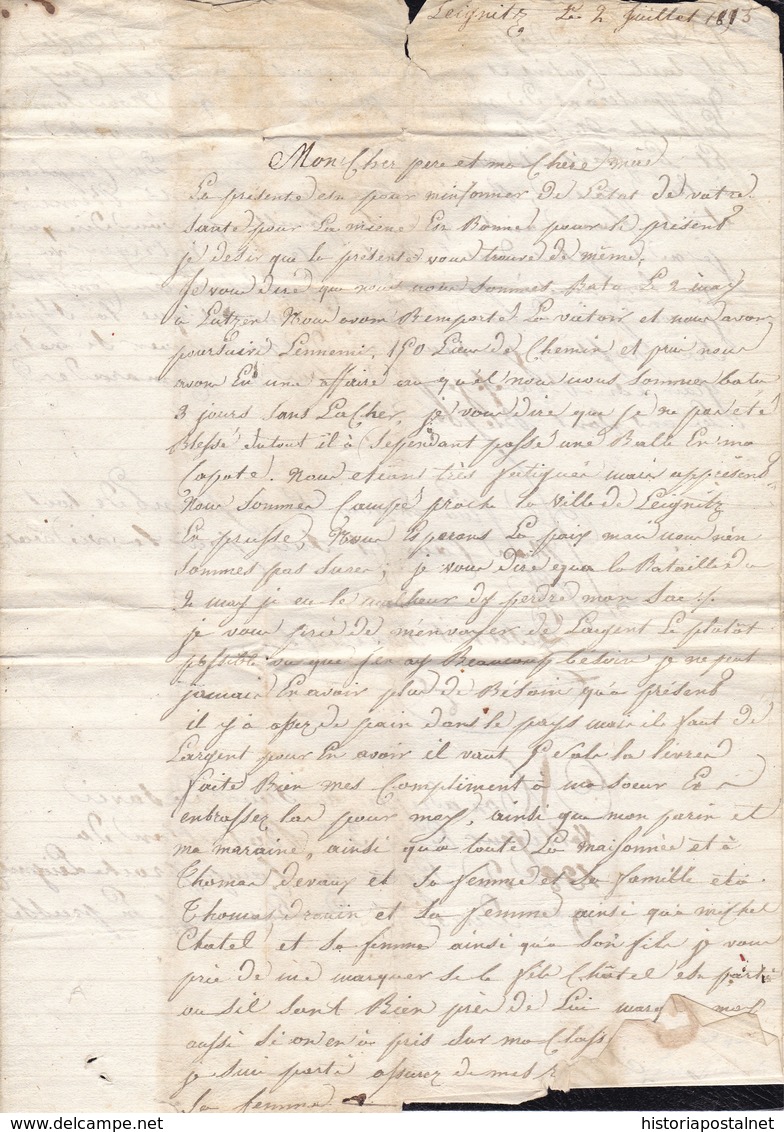 Leignitz Le 2 Juillet 1813
Mon Cher pere et ma Chère mère
La présente est pour minformer de L'état de votre
santé pour La miene Est Bonne pour le présent
je desir que la présente vous trouve de même,
je vous dire que nous nous sommes Batu Le 2 may
à Lutzen Nous avons Remporté La victoir et nous avons
poursuivi Lennemi, 150 Lieus de Chemin et puis nous
avons Eu une affaire au quél nous nous sommes batu
3 jours sans Lacher je vous dire que je ne pas été
Blessé du tout il à Cependant passé une Balle En ma
Capote. Nous etions très fatigués mais apprésent
Nous sommes Campé proche la ville de Leignitz
En prusse, Nous Esperons La paix mais nous nèn
sommes pas surer, je vous dire équa la Bataille du
2 may j eu le malheur dy perdre mon Sac,
je vous prié de m'envoyer de L'argent Le plutôt
possible vu que j'en ay Beaucoup besoin je ne peut
jamais En avoir plus de Bésoin qu'à présent
il y à assez de pain dans le pays mais il faut de
L'argent pour En avoir il vaut 9 sols la livres
faite Bien mes Compliment à ma soeur Et
enbrassez las pour moy, ainsi que mon parin et
ma maraine, ainsi qu'a toute La maisonnée et à
Thomas devaux et sa femme et sa famille et à
Thomas drouin et sa femme ainsi qu'à michel
Chatel et sa femme ainsi qu'a son fils je vous
prie de me marquer se le fils Châtel est parti
ou sil sont Bien près de Lui marqu moy
aussi si on en à pris sur ma Class
je suis parti assurez de mes
sa femme
historiapostalnet